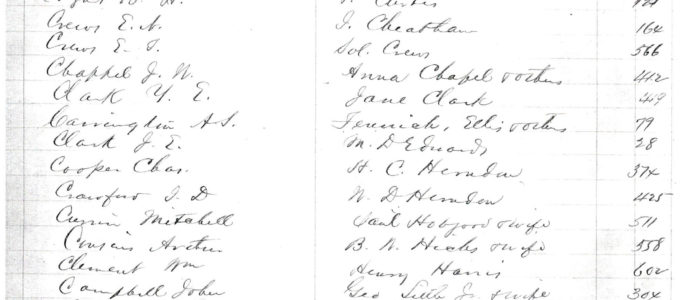 Crews E. N. I. Cheatham 164
Crews E. S. Sol. Crews 566
Chappel J. W. Anna Chapel & others 442
Clark Y. E. Jane Clark
Carrington A. S. Jeremiah, Ellis & others 79
Clark J. E. M. D Edwards 28
Cooper Chas. H. C. Herndon 374
Crawford I. D W. D Herndon 425
Currin Mitchell Saul Hobgood & wife 511
Cousins Arthur B. N. Hicks & wife 558
Clement Wm Henry Harris 602
Campbell John Geo Little Jr. & wife 304